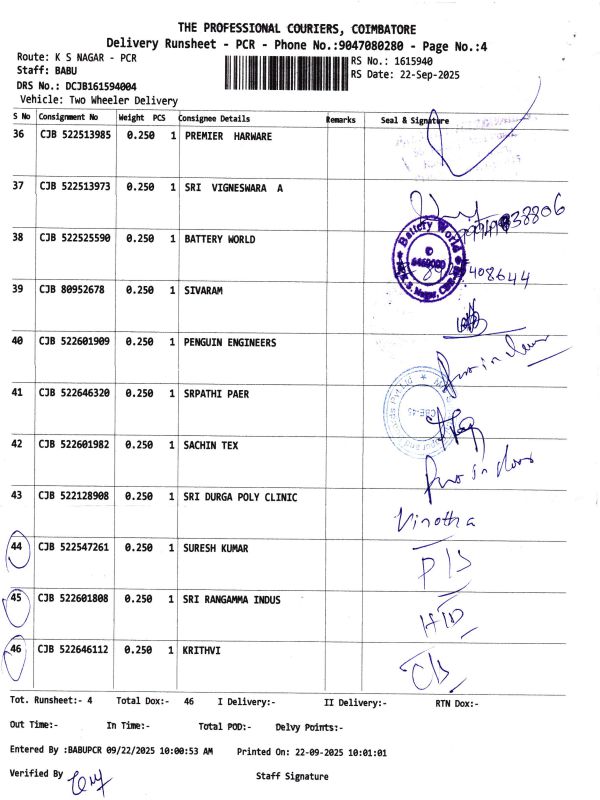 THE PROFESSIONAL COURIERS, COIMBATORE
Delivery Runsheet - PCR - Phone No.:9047080280 - Page No.:4
Route: K S NAGAR - PCR
RS No.: 1615940
Staff: BABU
RS Date: 22-Sep-2025
DRS No.: DCJB161594004
Vehicle: Two Wheeler Delivery
S No Consignment No Weight PCS Consignee Details Remarks Seal & Signature
36 CJB 522513985 0.250 1 PREMIER HARWARE
37 CJB 522513973 0.250 1 SRI VIGNESWARA A
38 CJB 522525590 0.250 1 BATTERY WORLD
Battery World
39 CJB 80952678 0.250 1 SIVARAM
40 CJB 522601909 0.250 1 PENGUIN ENGINEERS
41 CJB 522646320 0.250 1 SRPATHI PAER
42 CJB 522601982 0.250 1 SACHIN TEX
43 CJB 522128908 0.250 1 SRI DURGA POLY CLINIC
Vinotha
44 CJB 522547261 0.250 1 SURESH KUMAR
45 CJB 522601808 0.250 1 SRI RANGAMMA INDUS
46 CJB 522646112 0.250 1 KRITHVI
Tot. Runsheet:- 4 Total Dox:- 46 I Delivery:- II Delivery:- RTN Dox:-
Out Time:- In Time:- Total POD:- Delvy Points:-
Entered By :BABUPCR 09/22/2025 10:00:53 AM Printed On: 22-09-2025 10:01:01
Verified By
Staff Signature